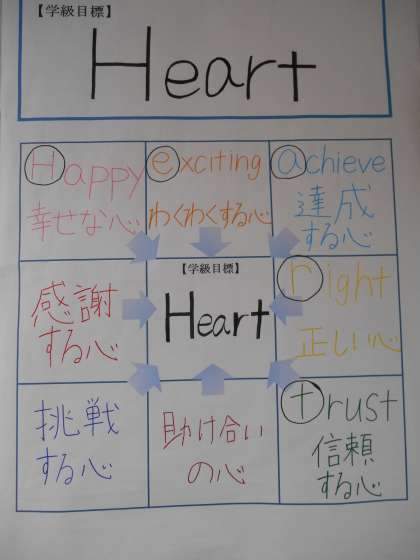 【学級目標】
Heart
Happy
幸せな心
exciting
わくわくする心
achieve
達成
する心
感謝
する心
【学級目標】
Heart
right
正しい心
挑戦
する心
助け合い
の心
trust
信頼
する心